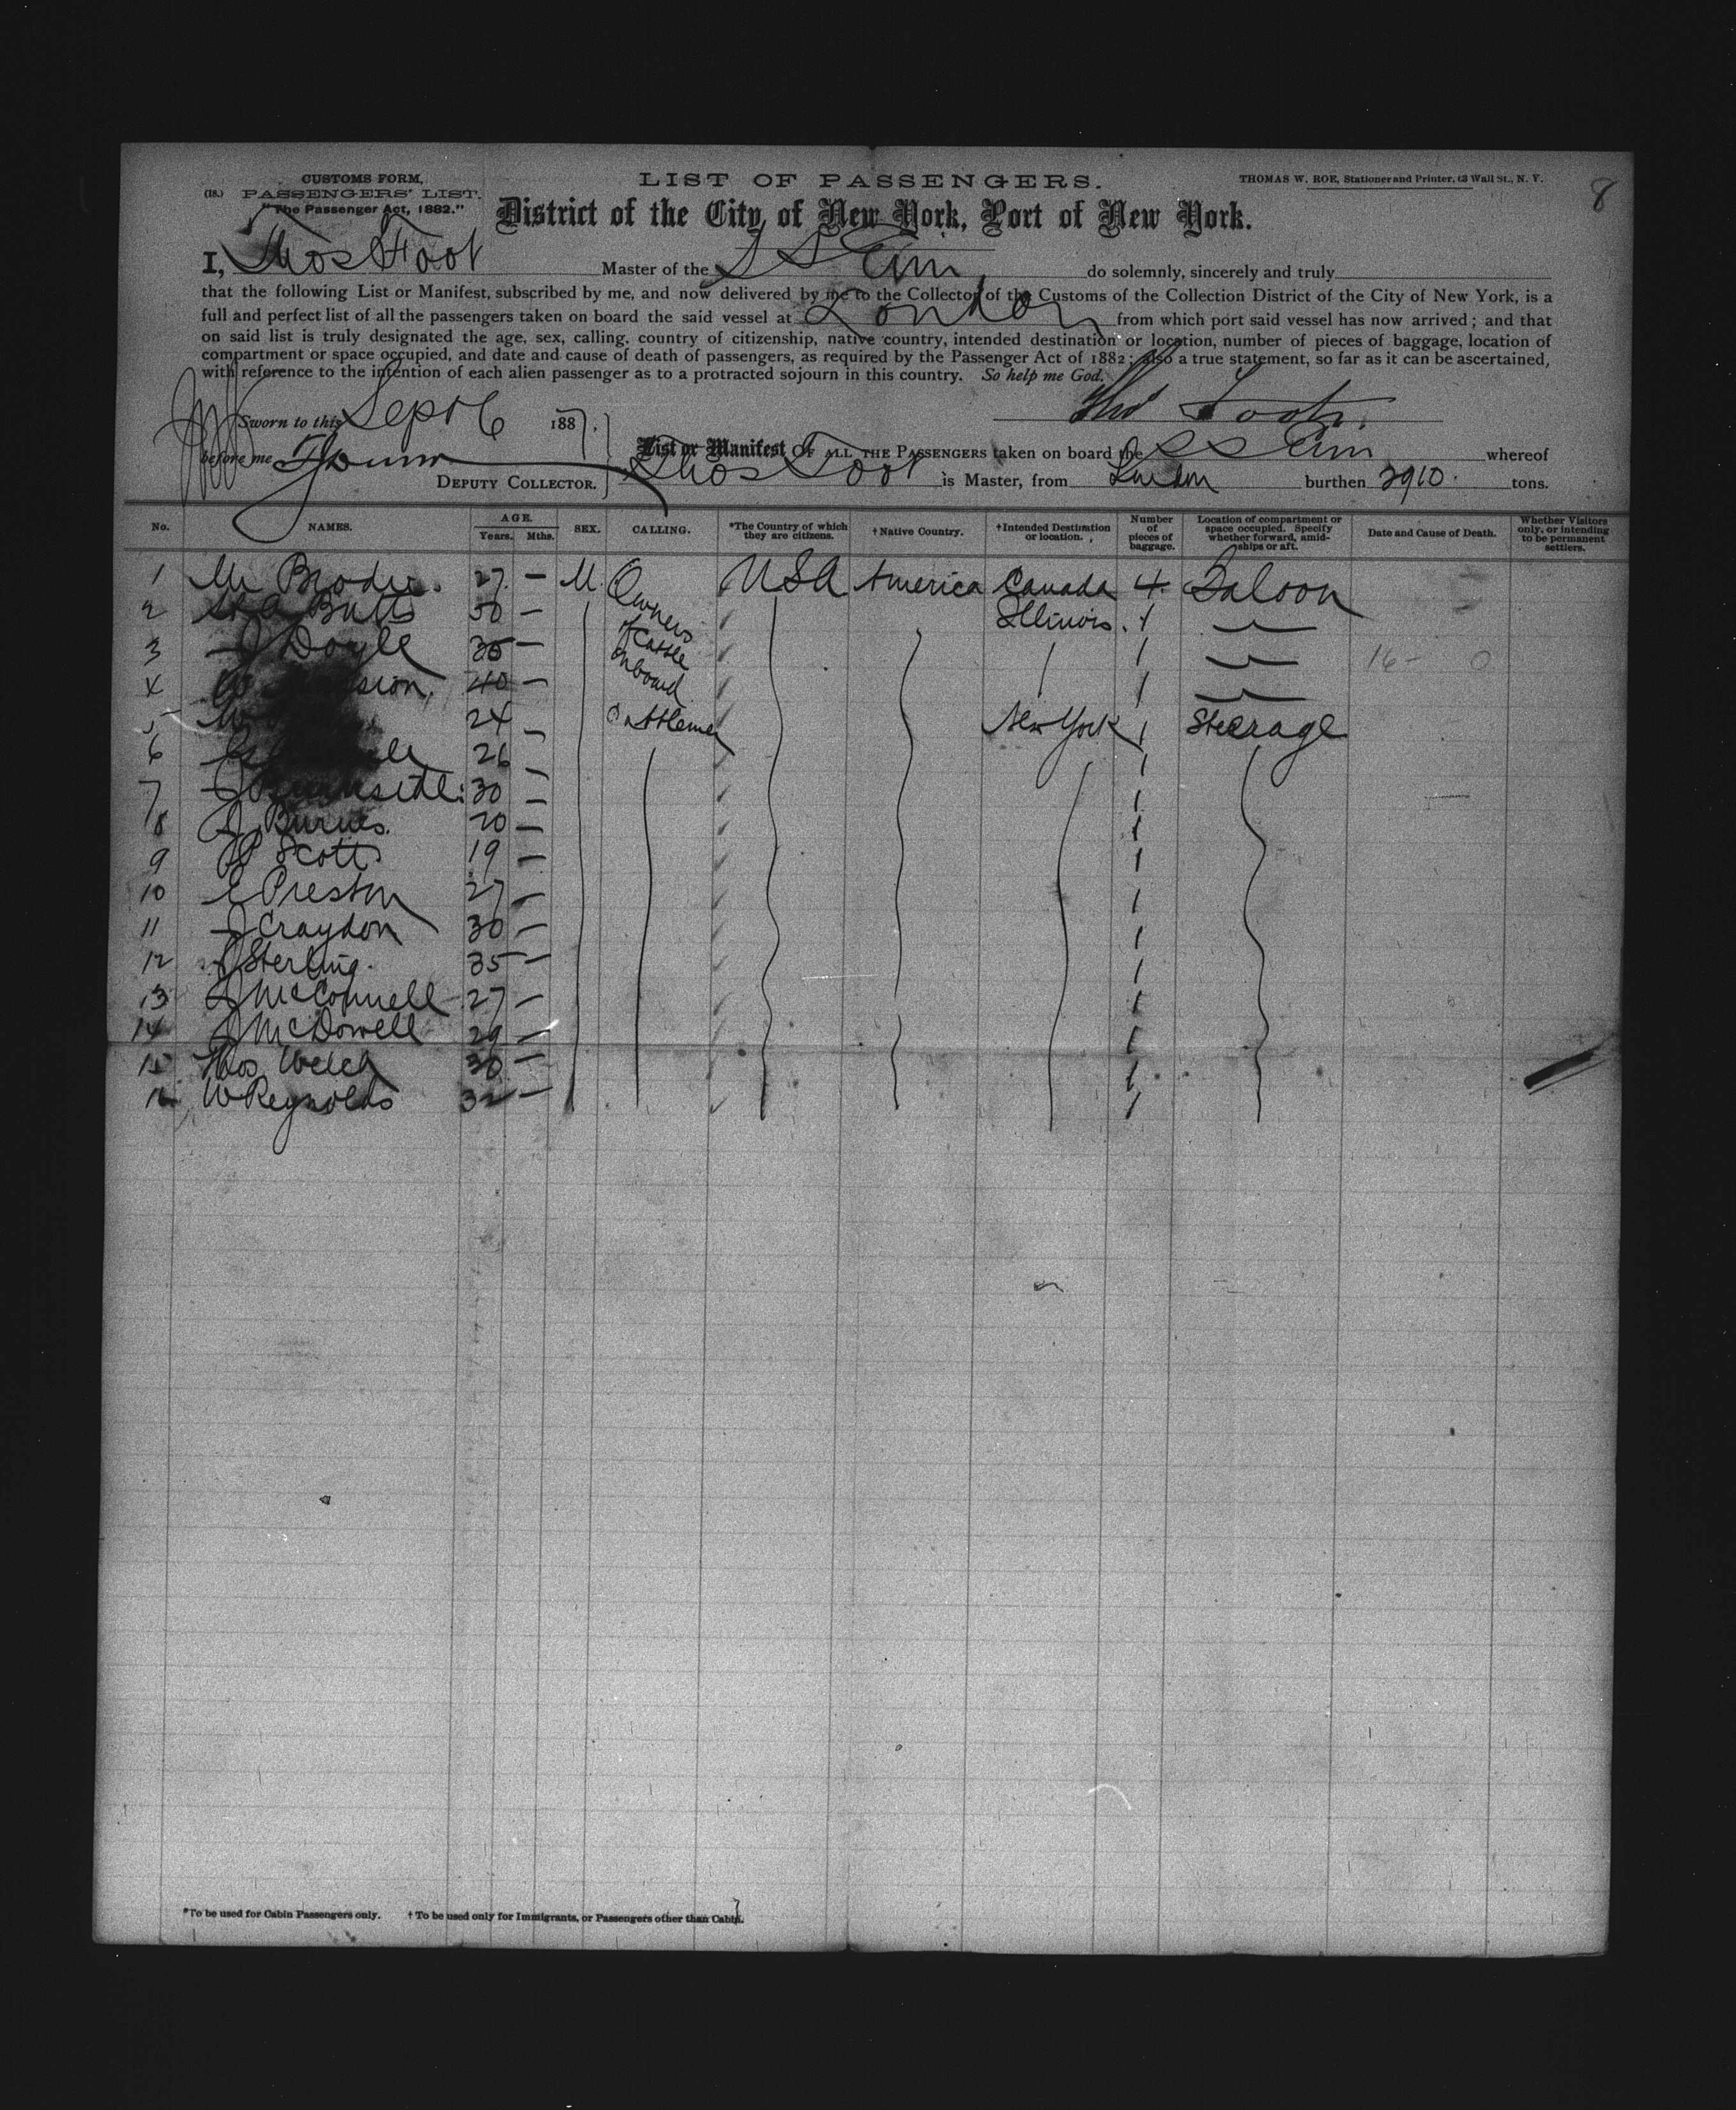 CUSTOMS FORM,
(18.) PASSENGERS' LIST.
"The Passenger Act, 1882."
LIST OF PASSENGERS.
THOMAS W. ROE, Stationer and Printer, 13 Wall St., N. Y.
8
District of the City of New York, Port of New York.
I, Thos Foot Master of the S S do solemnly, sincerely and truly
that the following List or Manifest, subscribed by me, and now delivered by me to the Collector of the Customs of the Collection District of the City of New York, is a
full and perfect list of all the passengers taken on board the said vessel at London from which port said vessel has now arrived; and that
on said list is truly designated the age, sex, calling, country of citizenship, native country, intended destination or location, number of pieces of baggage, location of
compartment or space occupied, and date and cause of death of passengers, as required by the Passenger Act of 1882; also a true statement, so far as it can be ascertained,
with reference to the intention of each alien passenger as to a protracted sojourn in this country. So help me God.
Thos Foot
Sworn to this Sept 6 1887.
before me
DEPUTY COLLECTOR.
List or Manifest OF ALL THE PASSENGERS taken on board the S S whereof
Thos Foot is Master, from London burthen 3910 tons.
No. NAMES. AGE. Years. Mths. SEX. CALLING. *The Country of which they are citizens. †Native Country. †Intended Destination or location. Number of pieces of baggage. Location of compartment or space occupied. Specify whether forward, amidships or aft. Date and Cause of Death. Whether Visitors only, or intending to be permanent settlers.
1 Mr 27 — M Owners of Cattle onboard USA America Canada 4 Saloon
2 Butts 50 — Illinois 1
3 J Doyle 35 — 1 16 - 0
4 W 40 — 1
5 24 — Cattlemen New York 1 Steerage
6 26 — 1
7 J 30 — 1
8 J Burnes 20 — 1
9 Scott 19 — 1
10 E Preston 27 — 1
11 J Craydon 30 — 1
12 J Sterling 35 — 1
13 J McConnell 27 — 1
14 J McDowell 29 — 1
15 Thos Welch 30 — 1
16 W Reynolds 32 — 1
*To be used for Cabin Passengers only. † To be used only for Immigrants, or Passengers other than Cabin.